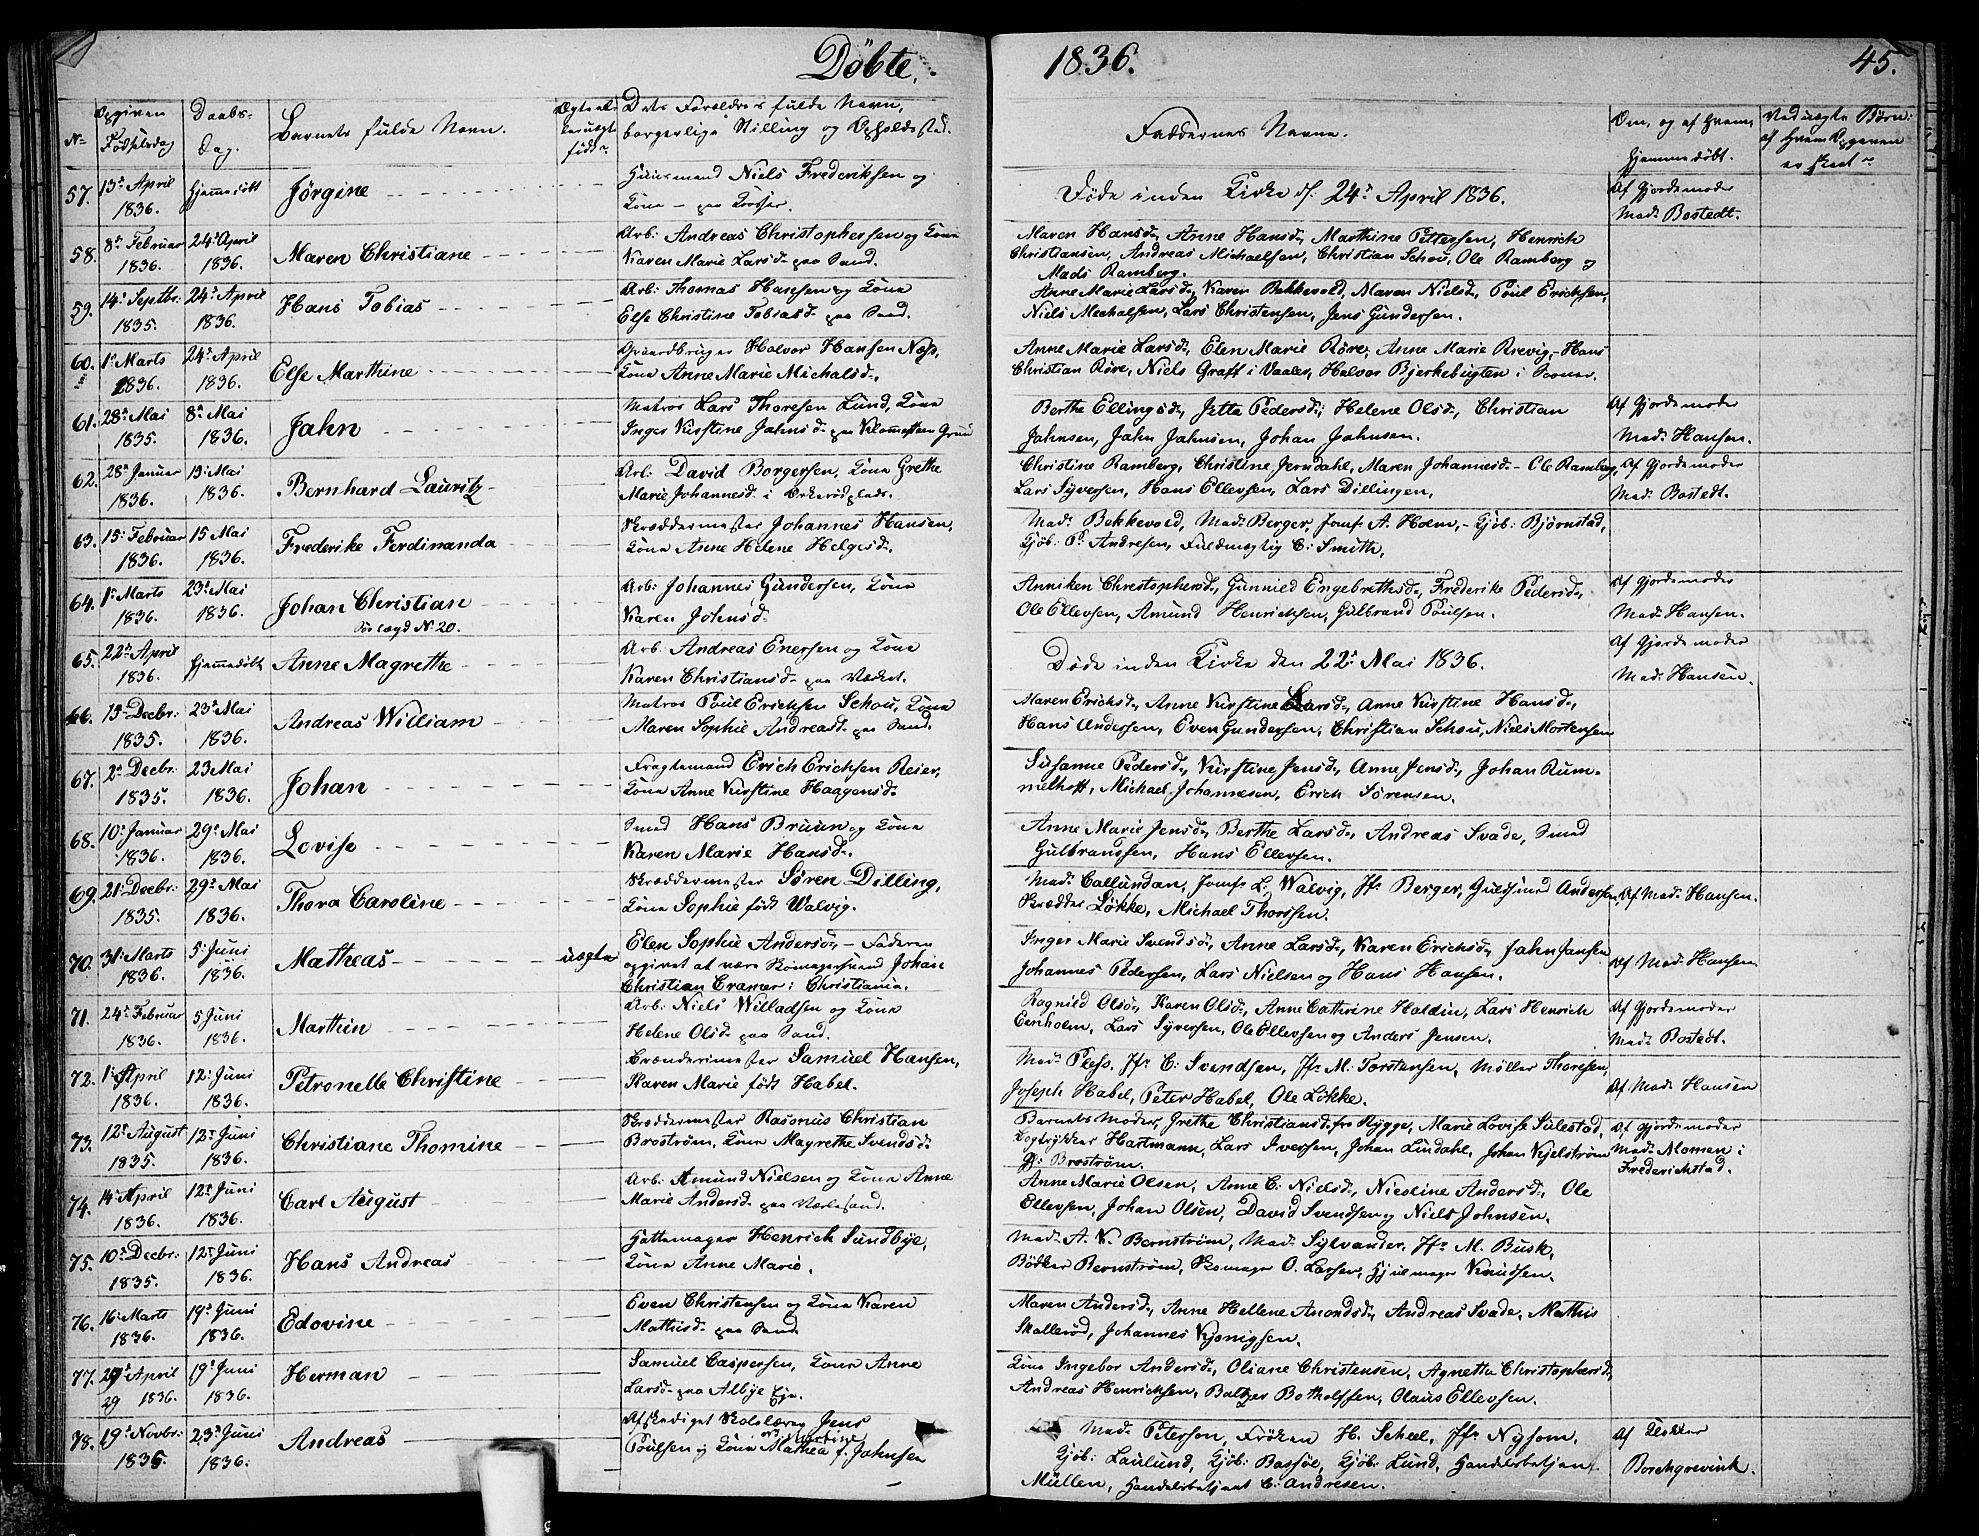 Döbte,
1836.
45.
No
Opgiven Fødselsdag
Daabs-Dag.
Barnets fulde Navn.
Dets Forældres fulde Navn, borgerlige Stilling og Opholdssted.
Faddernes Navne.
Om, og af hvem, hjemmedøbt.
Ved uægte Børn: af hvem Opgaven er skeet
57. 13de April 1836. hjemmedöbt Jørgine
Huusmand Niels Frederiksen og
Kone
Døde inden Kirke d. 24de April 1836.
Af Gjordemoder
Mad: Bostedt.
58. 8de Februar 1836. 24de April 1836. Maren Christiane
Arb: Andreas Christophersen og Kone
Karen Marie Larsd. paa Sand.
Maren Hansd., Anne Hansd., Marthine Pettersen, Henrich
Christiansen, Andreas Michaelsen, Christian Schou, Ole Ramberg og
Mads Ramberg.
59. 14de Septbr: 1835. 24de April 1836. Hans Tobias
Arb: Thomas Hansen og Kone
Else Christine Tobiasd. paa Sand.
Anne Marie Larsd., Karen Bekkevold, Maren Nielsd., Poul Ericksen,
Niels Mechalsen, Lars Christensen, Jens Gundersen.
60. 1ste Marts 1836. 24de April 1836. Else Marthine
Gaardbruger Halvor Hansen Næs,
Kone Anne Marie Michalsd.
Anne Marie Larsd., Elen Marie Röre, Anne Marie Brevig, Hans
Christian Röre, Niels Graft i Vaaler, Halvor Bjerkebugten i Soner.
61. 28de Mai 1835. 8de Mai 1836. Jahn
Matros Lars Thoresen Lund, Kone
Inger Kirstine Jahnsd. paa Klommesteen Grund
Berthe Ellingsd., Jetta Pedersd., Helene Olsd., Christian
Jahnsen, Jahn Jahnsen, Johan Jahnsen.
Af Gjordemoder
Mad: Hansen.
62. 28de Januar 1836. 15 Mai 1836. Bernhard Lauritz
Arb: David Borgersen, Kone Grethe
Marie Johannesd. i Orkerødplads.
Christine Ramberg, Christine Jerndahl, Maren Johannesd. - Ole Ramberg,
Lars Syversen, Hans Ellevsen, Lars Dillingen,
Af Gjordemoder
Mad: Bostedt.
63. 15: Februar 1836. 15 Mai 1836. Frederike Ferdinanda
Skræddermester Johannes Hansen,
Kone Anne Helene Helgesd.
Mad: Bekkevold, Mad: Berger, Jomf. A. Holm, - Kjøb: Bjørnstad,
Kjöb: P. Andresen, Fuldmægtig C: Smith,
64. 1ste Marts 1836. 23de Mai 1836. Johan Christian
Forlægd N: 20.
Arb: Johannes Gundersen, Kone
Karen Johnsd.
Anniken Christophersd., Gunnild Engebrethsd., Frederike Pedersd.,
Ole Ellevsen, Amund Henricksen, Gulbrand Poulsen.
Af Gjordemoder
Mad: Hansen.
65. 22de April 1836. hjemmedöbt Anne Magrethe
Arb. Andreas Enersen og Kone
Karen Christiansd. paa Værket.
Døde inden Kirke den 22de Mai 1836.
Af Gjordemoder
Mad: Hansen.
66. 15de Decbr: 1835. 23de Mai 1836. Andreas William
Matros Poul Ericksen Schou, Kone
Maren Sophie Andreasd. paa Sand.
Maren Ericksd., Anne Kirstine Larsd., Anne Kirstine Hansd.,
Hans Andersen, Even Gundersen, Christian Schou, Niels Mortensen
67. 2den Decbr: 1835. 23 Mai 1836. Johan
Fragtemand Erich Ericksen Reier,
Kone Anne Kirstine Haagensd.
Susanne Pedersd., Kirstine Jensd., Anne Jensd., Johan Rum-
melhoff, Michael Johannesen, Erich Sörensen.
68. 10de Januar 1836. 29de Mai 1836. Lovise
Smed Hans Bruun og Kone
Karen Marie Hansd.
Anne Marie Jensd., Berthe Larsd., Andreas Svade, Smed
Gulbranssen, Hans Ellevsen.
69. 21de Decbr: 1835. 29de Mai 1836. Thora Caroline
Skræddermester Sören Dilling,
Kone Sophie født Walvig.
Mad: Callundan, Jomf. L: Walvig, Jfr Berger, Guldsmed Andersen,
Skrædder Lökke, Michael Thorssen.
Af Mad: Hansen.
70. 31te Marts 1836. 5: Juni 1836. Matheas uægte
Elen Sophie Andersd., - Faderen
opgivet at være Skomagersvend Johan
Christian Cramer i Christiania.
Inger Marie Svendsd., Anne Larsd., Karen Ericksd., Jahn Jansen
Johannes Pedersen, Lars Nielsen og Hans Hansen.
Af Mad: Hansen
71. 24de Februar 1836. 5 Juni 1836. Marthin
Arb: Niels Willadsen og Kone
Helene Olsd. paa Sand.
Ragnild Olsd., Karen Olsd., Anne Cathrine Haldin, Lars Henrich
Eenholm, Lars Syversen, Ole Ellevsen og Anders Jensen.
Af Gjordemoder
Mad: Bostedt.
72. 1: April 1836. 12: Juni 1836. Petronelle Christine
Brænderimester Samuel Hansen,
Karen Marie født Habel.
Mad: Pless, Jfr C: Svendsen, Jfr M: Torstensen, Møller Thoresen,
Joseph Habel, Peter Habel, Ole Lökke.
Af Mad: Hansen
73. 12te August 1835. 12te Juni 1836. Christiane Thomine
Skræddermester Rasmus Christian
Broström, Kone Magrethe Svendsd.
Barnets Moder, Grethe Christiansd. fra Rygge, Marie Lovise Sulestad,
Bogtrykker Hartmann, Lars Iversen, Johan Lindahl, Johan Kjelström
Broström.
Af Gjordemoder
Mad: Momen i
Frederichstad.
74. 14de April 1836. 12te Juni 1836. Carl August
Arb: Amund Nielsen og Kone Anne
Marie Andersd. paa Værlesand.
Anne Marie Olsen, Anne C: Nielsd., Nicoline Andersd., Ole
Ellevsen, Johan Olsen, David Svendsen og Niels Johnsen.
75. 10de Decbr: 1835. 12te Juni 1836. Hans Andreas
Hattemager Henrich Sundbye,
Kone Anne Marie.
Mad: A. K. Bernström, Mad: Sylvander, Jfr M. Busk,
Bödker Bernström, Skomager O. Larsen, Hjulmager Knudsen.
76. 16: Marts 1836. 19de Juni 1836. Edovine
Even Christensen og Kone Karen
Mathisd. paa Sand
Maren Andersd., Anne Hellene Amondsd., Andreas Svade, Mathis
Skallerød, Johannes Kjonigsen.
77. April 29 1836. 19de Juni 1836. Herman
Samuel Caspersen, Kone Anne
Larsd. paa Albye Eje.
Kone Ingebor Andersd., Oliane Christensen, Agnetta Christophersd.,
Andreas Henricksen, Baltzer Botholfsen, Olaus Ellevsen.
78. 19de Novbr: 1835. 23de Juni 1836. Andreas
Afskediget Skolelærer Jens
Poulsen og Kone Mathea f. Jahnsen
Mad: Peterson, Frøken H. Scheel, Jfr Nysom,
Kjøb: Laulund, Kjøb: Bassøe, Kjøb: Lund, Handelsbetjent
Müllen, Handelsbetjent C: Andresen.
Af Klokker
Borchgrevink.